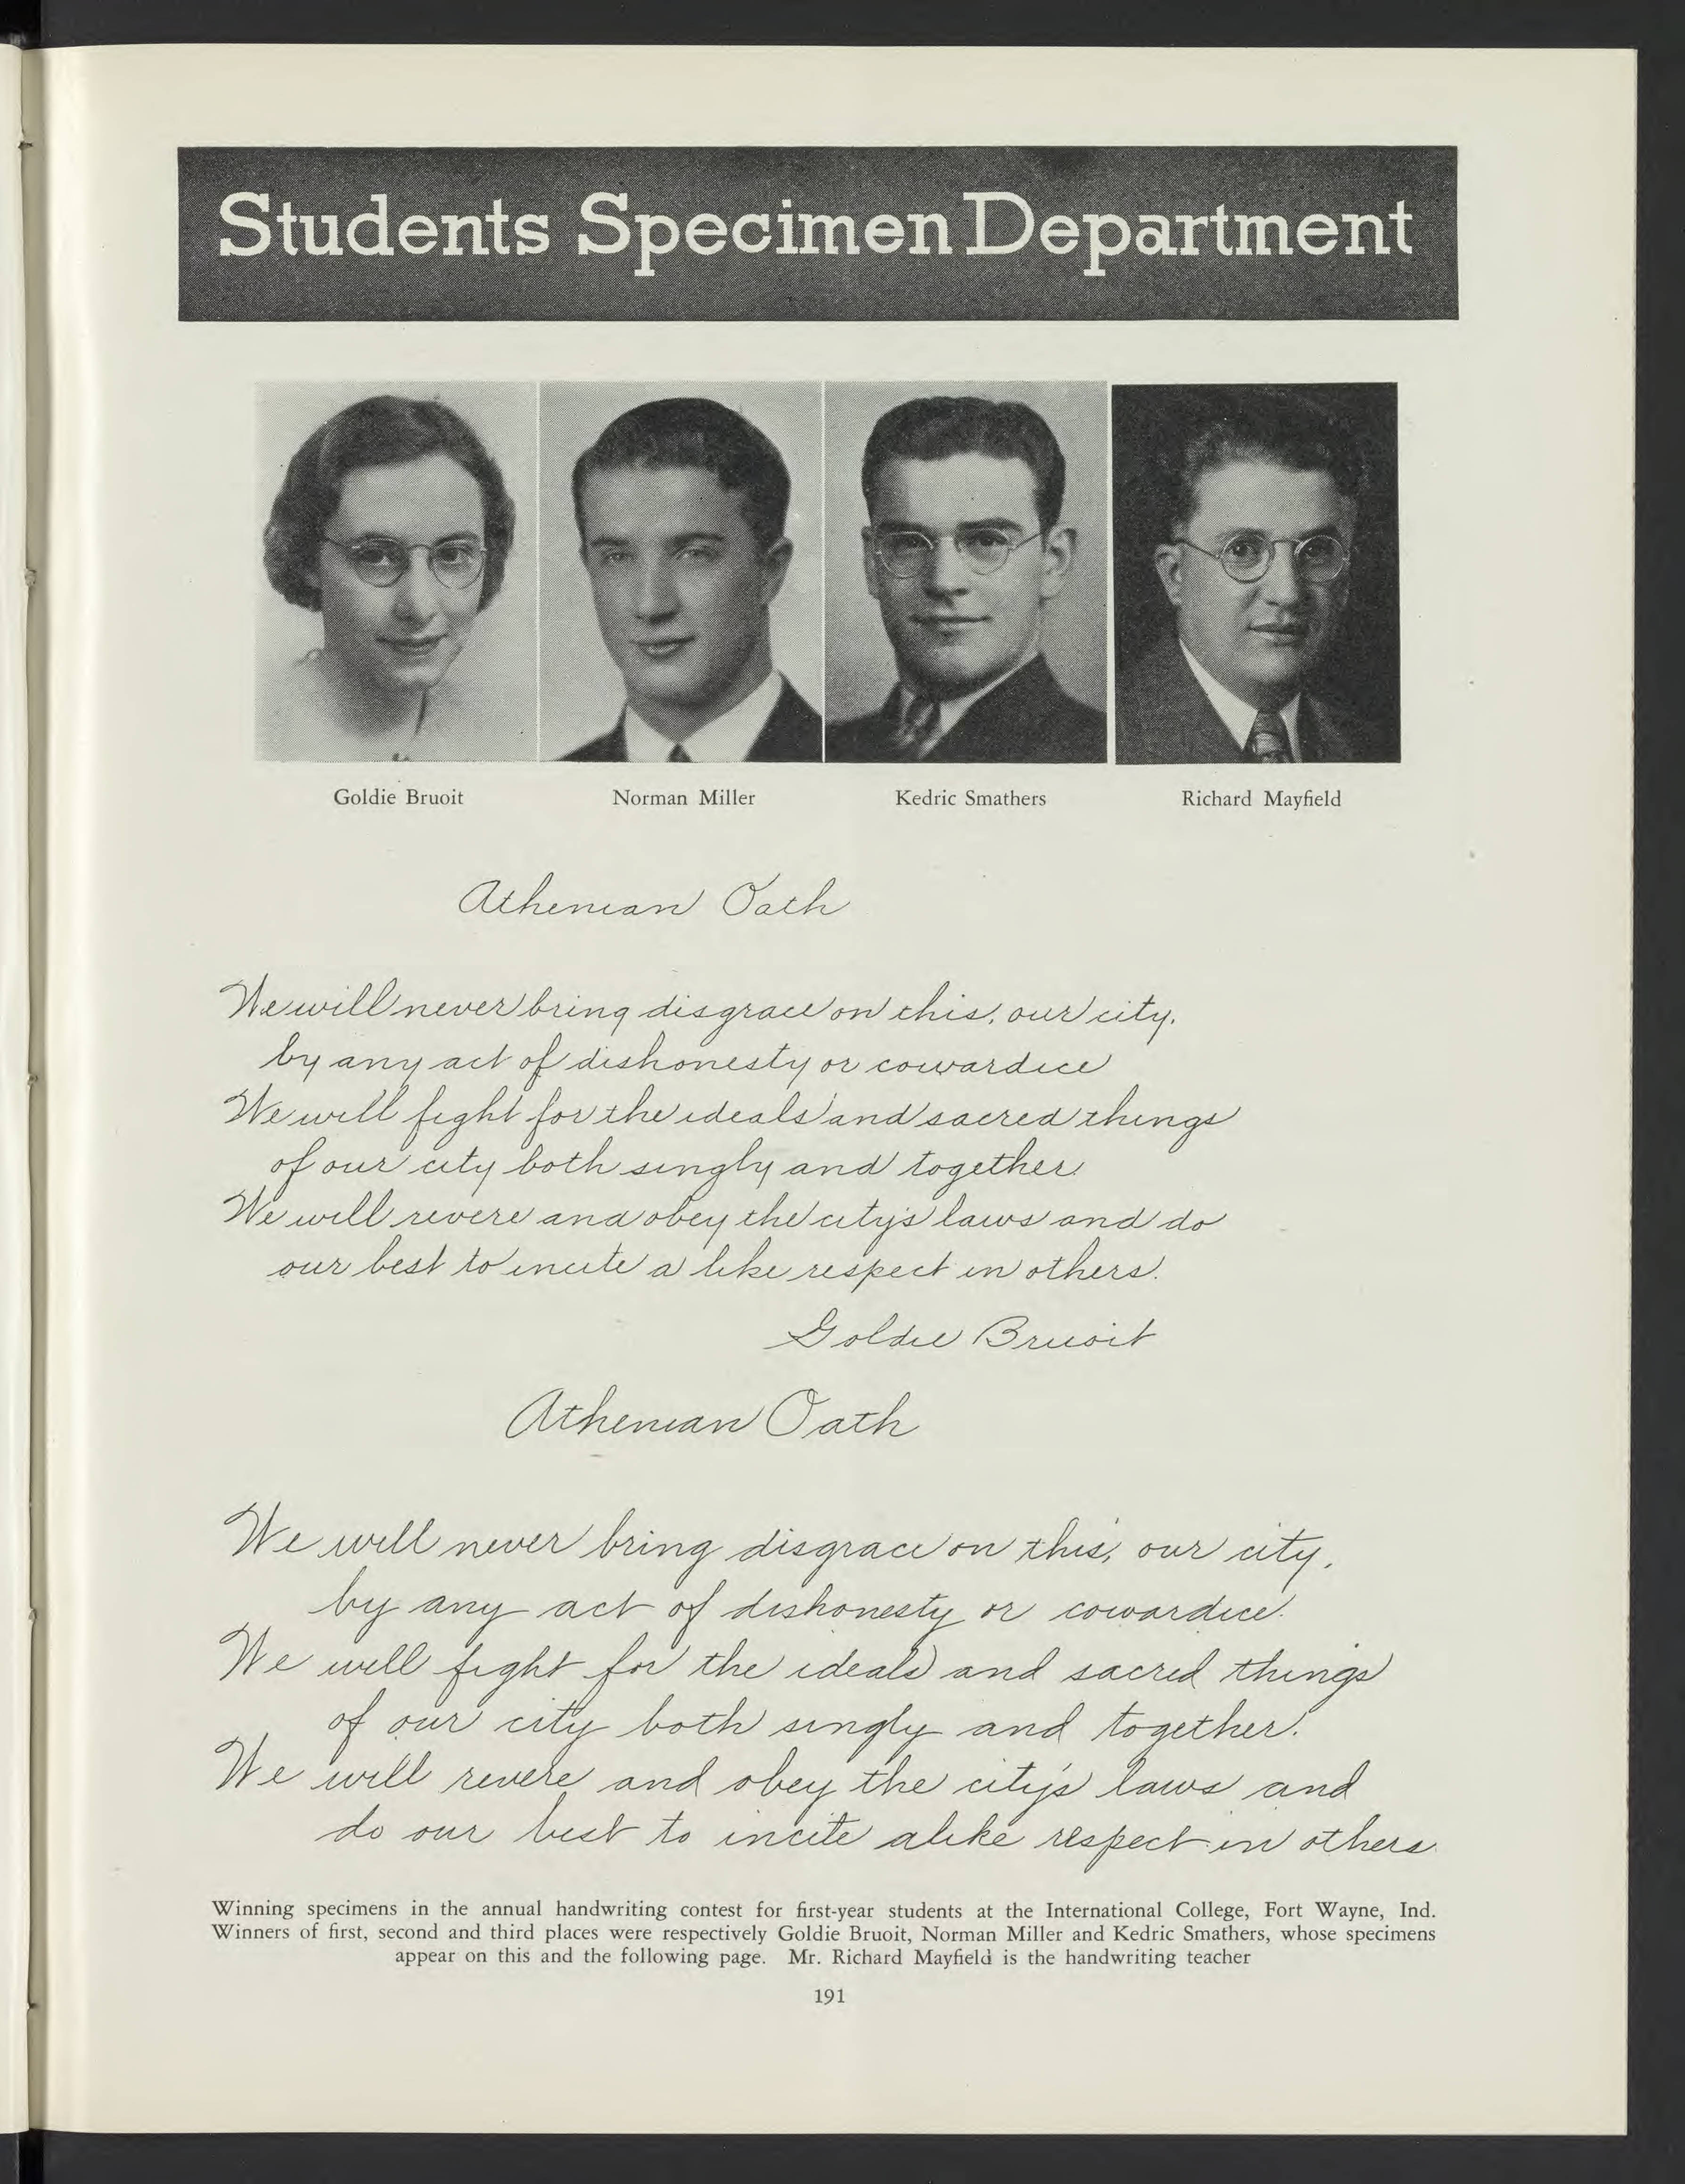 Students Specimen Department
Goldie Bruoit Norman Miller Kedric Smathers Richard Mayfield
Athenian Oath
We will never bring disgrace on this, our city,
by any act of dishonesty or cowardice
We will fight for the ideals and sacred things
of our city both singly and together.
We will revere and obey the city's laws and do
our best to incite a like respect in others.
Goldie Bruoit
Athenian Oath
We will never bring disgrace on this, our city,
by any act of dishonesty or cowardice.
We will fight for the ideals and sacred things
of our city both singly and together.
We will revere and obey the city's laws and
do our best to incite alike respect in others.
Winning specimens in the annual handwriting contest for first-year students at the International College, Fort Wayne, Ind.
Winners of first, second and third places were respectively Goldie Bruoit, Norman Miller and Kedric Smathers, whose specimens
appear on this and the following page. Mr. Richard Mayfield is the handwriting teacher
191